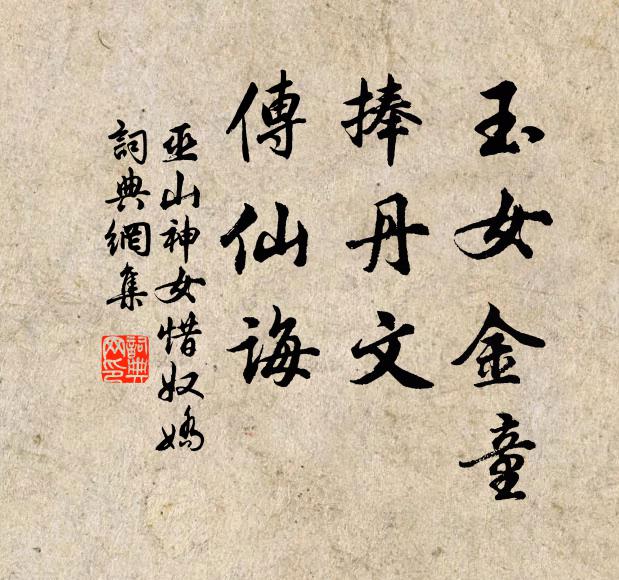 玉女金童
捧丹文
傳仙誨
巫山神女惜奴嬌
詞典網集
詞典網印